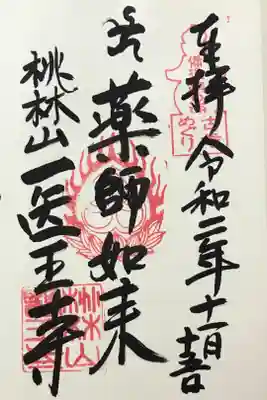 奉拝 令和二年十一月吉日
薬師如来
桃林山医王寺
めぐり